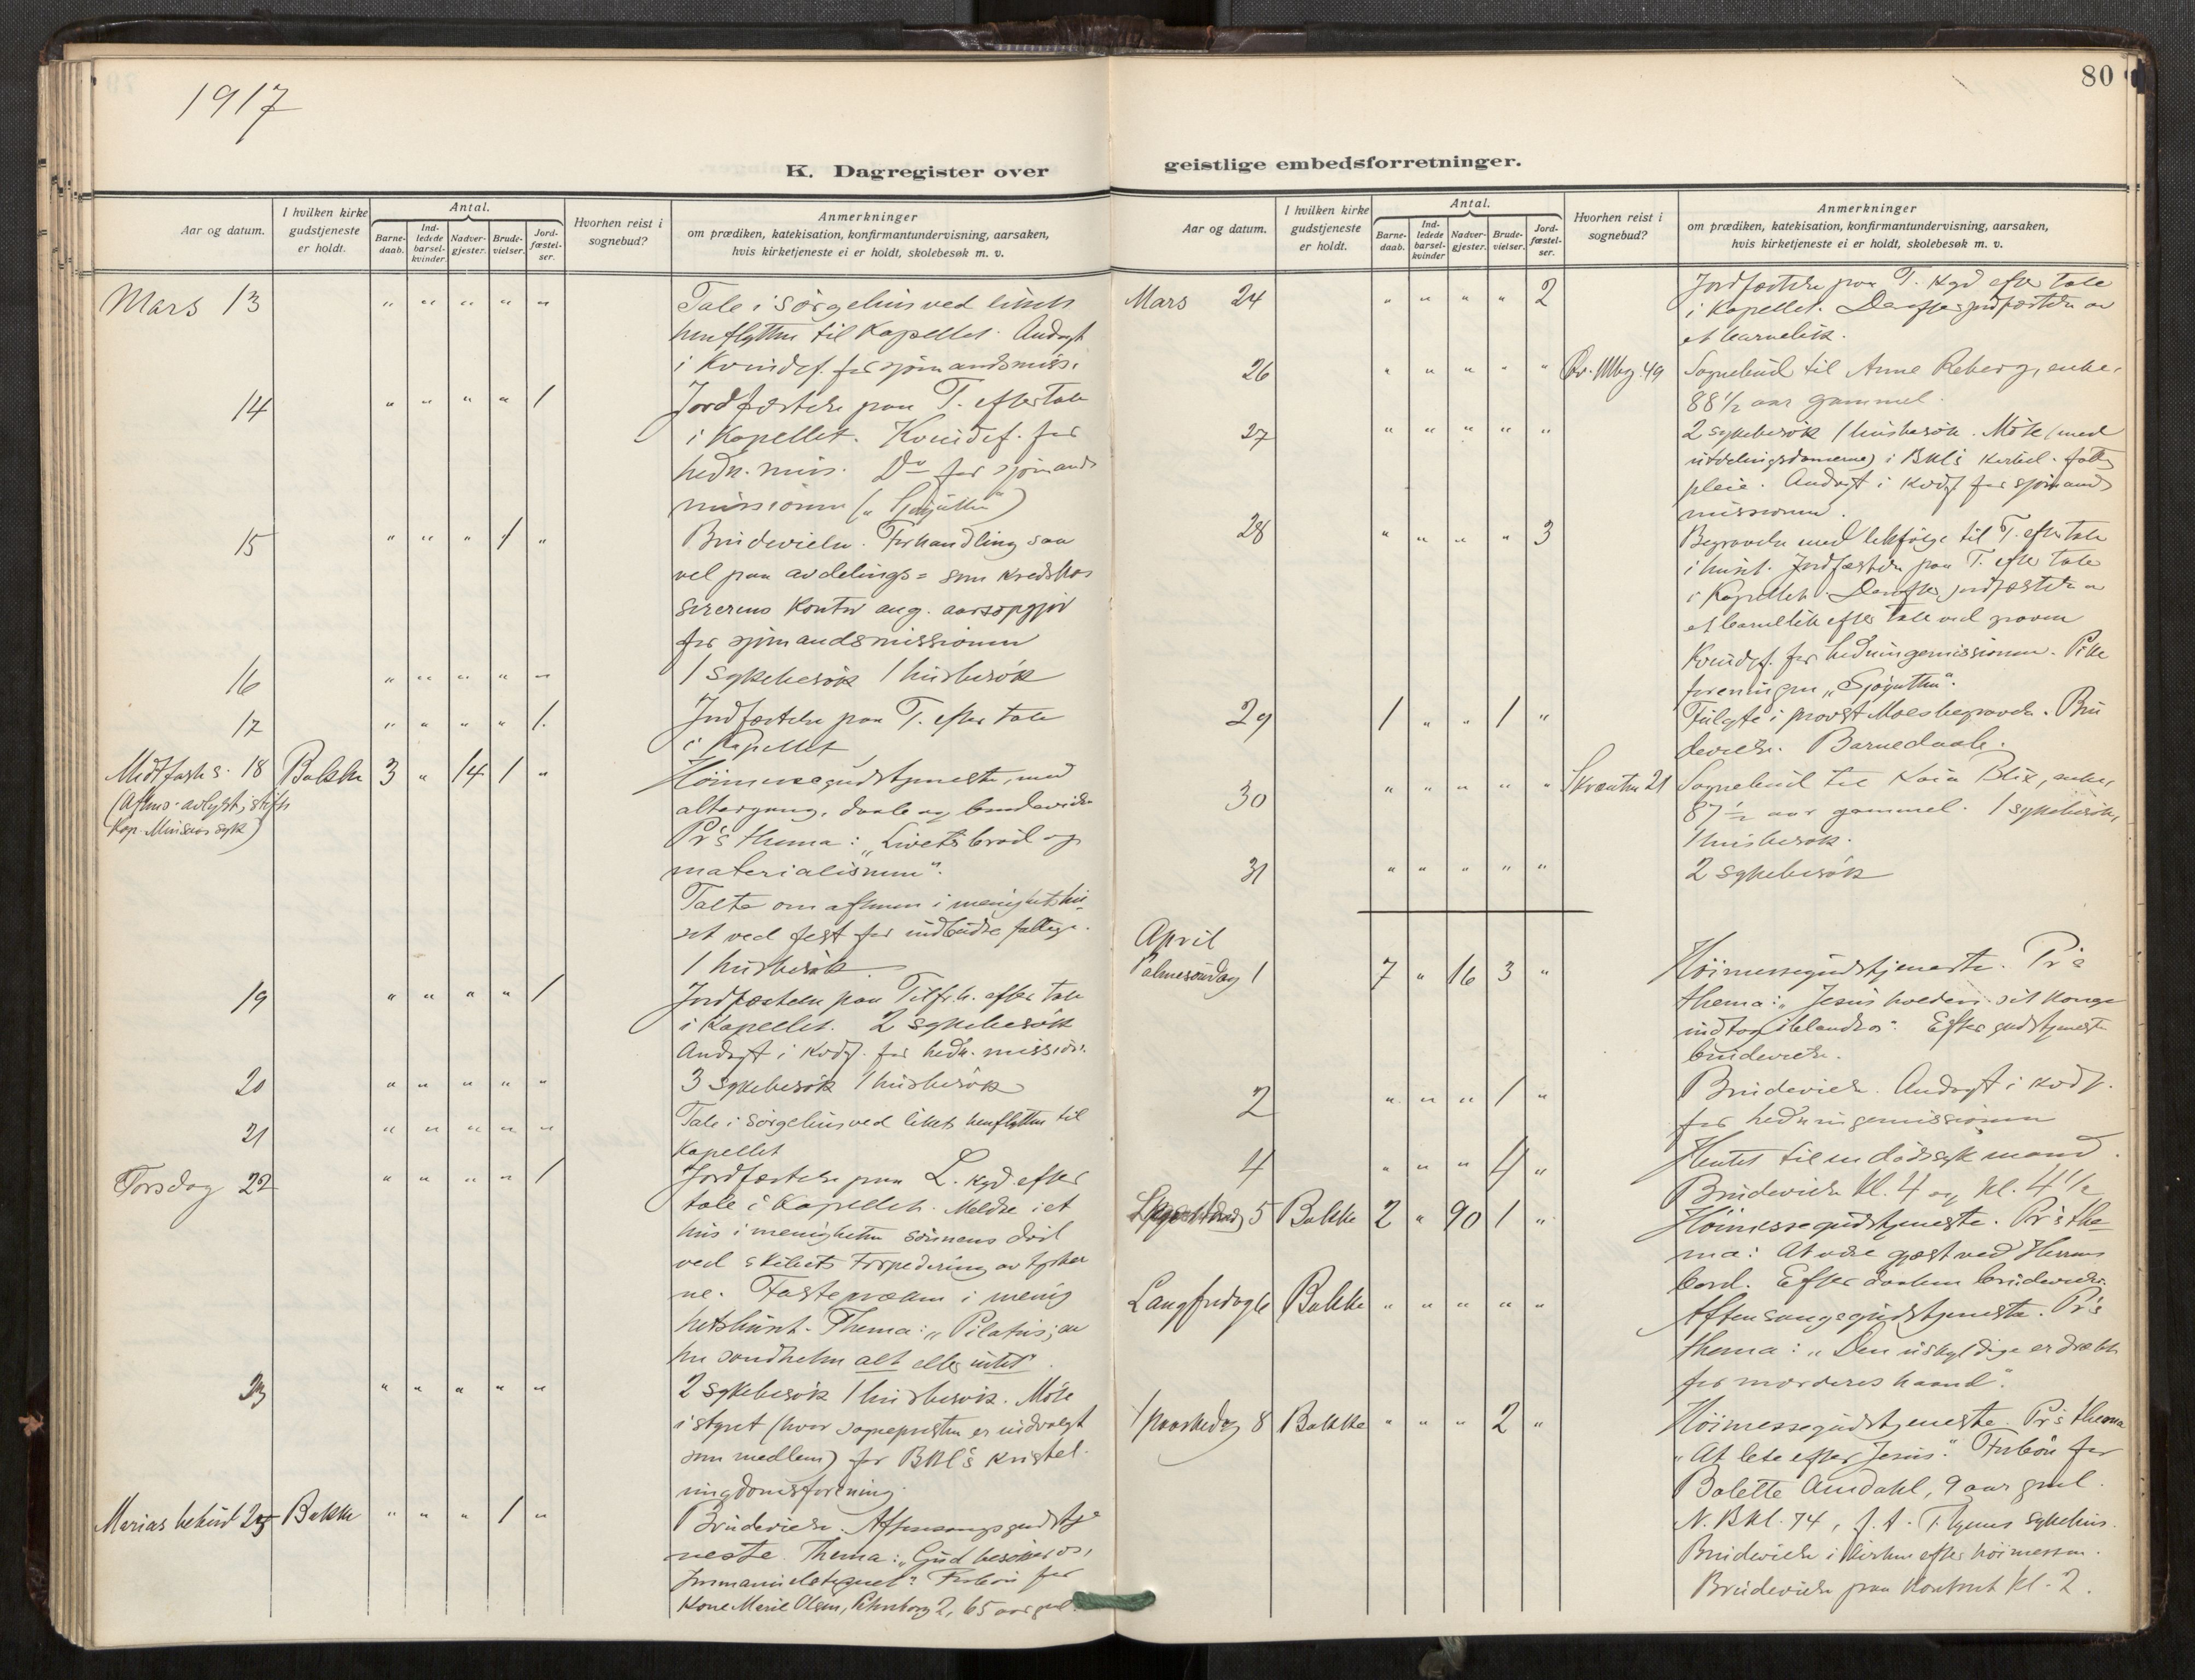 1917
80
K. Dagregister over
geistlige embedsforretninger.
Aar og datum.
I hvilken kirke gudstjeneste er holdt.
Antal.
Barne-daab.
Ind-ledede barsel-kvinder.
Nadver-gjester.
Brude-vielser.
Jord-fæstel-ser.
Hvorhen reist i sognebud?
Anmerkninger
om prædiken, katekisation, konfirmantundervisning, aarsaken,
hvis kirketjeneste ei er holdt, skolebesøk m. v.
Mars 13 " " " " " Tale i sørgehus ved likets
henflytten til Kapellet. Andagt
i Kvindef. for sjømandsmiss.
14 " " " " 1 Jordfæstelse paa T. efter tale
i Kapellet. Kvindef. for
hedn. miss. Do for sjømands
missionen
15 " " " 1 " Brudevielse. Forhandling saa
vel paa avdelings= som kredskas
sererens kontor ang. aarsopgjør
for sjømandsmissionen
16 " " " " " 1 sykebesøk 1 husbesøk
17 " " " " 1. Jordfæstelse paa T. efter tale
i Kapellet
Midtfaste s. 18 Bakke 3 " 14 1 " Høimessegudstjeneste, med
(Aftens. avlyst,
Kap. syk)
altergang, daab og brudevielse
Pr's thema: "Livets brød og
materialismen".
Talte om aftenen i menighetshu-
set ved fest for indbudne fattige.
1 husbesøk.
19 " " " " 1 Jordfæstelse paa Tilfl. h. efter tale
i Kapellet. 2 sykebesøk
Andagt i kvdf. for hedn. mission.
20 " " " " " 3 sykebesøk 1 husbesøk
21 " " " " " Tale i sørgehus ved likets henflytten til
Kapellet
Torsdag 22 " " " " 1 Jordfæstelse paa L. kgd. efter
tale i Kapellet. Meldte i et
hus i menigheten sønnens død
ved skibets torpedering av tysker
ne. Fasteprædn i menig
hetshuset. Thema: "Pilatus;
sandheten alt eller intet".
23 " " " " " 2 sykebesøk 1 husbesøk. Møte
i styret (hvor sognepresten er indvalgt
som medlem) for BKl's kristel.
ungdomsforening.
Marias bebud. 25 Bakke " " " 1 " Brudevielse. Aftensangsgudstje
neste. Thema: "Gud besøker os,
Forbøn for
Kone Marie Olsen, 2, 65 aar gml.
Aar og datum.
I hvilken kirke gudstjeneste er holdt.
Antal.
Barne-daab.
Ind-ledede barsel-kvinder
Nadver-gjester.
Brude-vielser.
Jord-fæstel-ser.
Hvorhen reist i sognebud?
Anmerkninger
om prædiken, katekisation, konfirmantundervisning, aarsaken,
hvis kirketjeneste ei er holdt, skolebesøk m. v.
Mars 24 " " " " 2 Jordfæstelse paa T. kgd efter tale
i Kapellet. Derefter jordfæstelse av
et barnelik.
26 " " " " " Øv. Mbg. 49 Sognebud til Anne Reberg, enke,
88 1/2 aar gammel.
27 " " " " " 2 sykebesøk 1 husbesøk. Møte (med
utdelingsdamerne) i BKl's kirkel. fattig
pleie. Andagt i kvdf for sjømands
missionen.
28 " " " " 3 Begravelse med likfølge til T. efter tale
i huset. Jordfæstelse paa T. efter tale
i Kapellet. Derefter jordfæstelse av
et barnelik efter tale ved graven
Kvindef. for hedningemissionen. Pike
foreningen "Sjøgutten".
29 1 " " 1 " Fulgte i provst Moes begravelse. Bru
devielse. Barnedaab.
30 " " " " " Skrænten 21 Sognebud til Kaia Blix, enke,
87 1/2 aar gammel. 1 sykebesøk,
1 husbesøk.
31 " " " " " 2 sykebesøk
April
Palmesøndag 1 7 " 16 3 " Høimessegudstjeneste. Pr's
thema: "Jesus holder sit konge
indtog iblandt os". Efter gudstjeneste
brudevielse.
2 " " " 1 " Brudevielse. Andagt i kvdf.
for hedningemissionen
4 " " " 4 " Hentet til en dødssyk mand.
Brudevielse kl. 4 og kl. 4 1/2
5 Bakke 2 " 90 1 " Høimessegudstjeneste. Pr's the-
ma: At være gjæst ved Herrens
bord. Efter daaben brudevielse.
Langfredag 6 Bakke " " " " " Aftensangsgudstjeneste. Pr's
thema: "Den uskyldige er dræbt
for morderes haand".
1 paaskedag 8 Bakke " " " 2 " Høimessegudstjeneste. Pr's thema
"At lete efter Jesus." Forbøn for
Bolette Amdahl, 9 aar gml.
N. Bkl. 74, sykehus.
Brudevielse i kirken efter høimessen.
Brudevielse paa kontoret kl. 2.